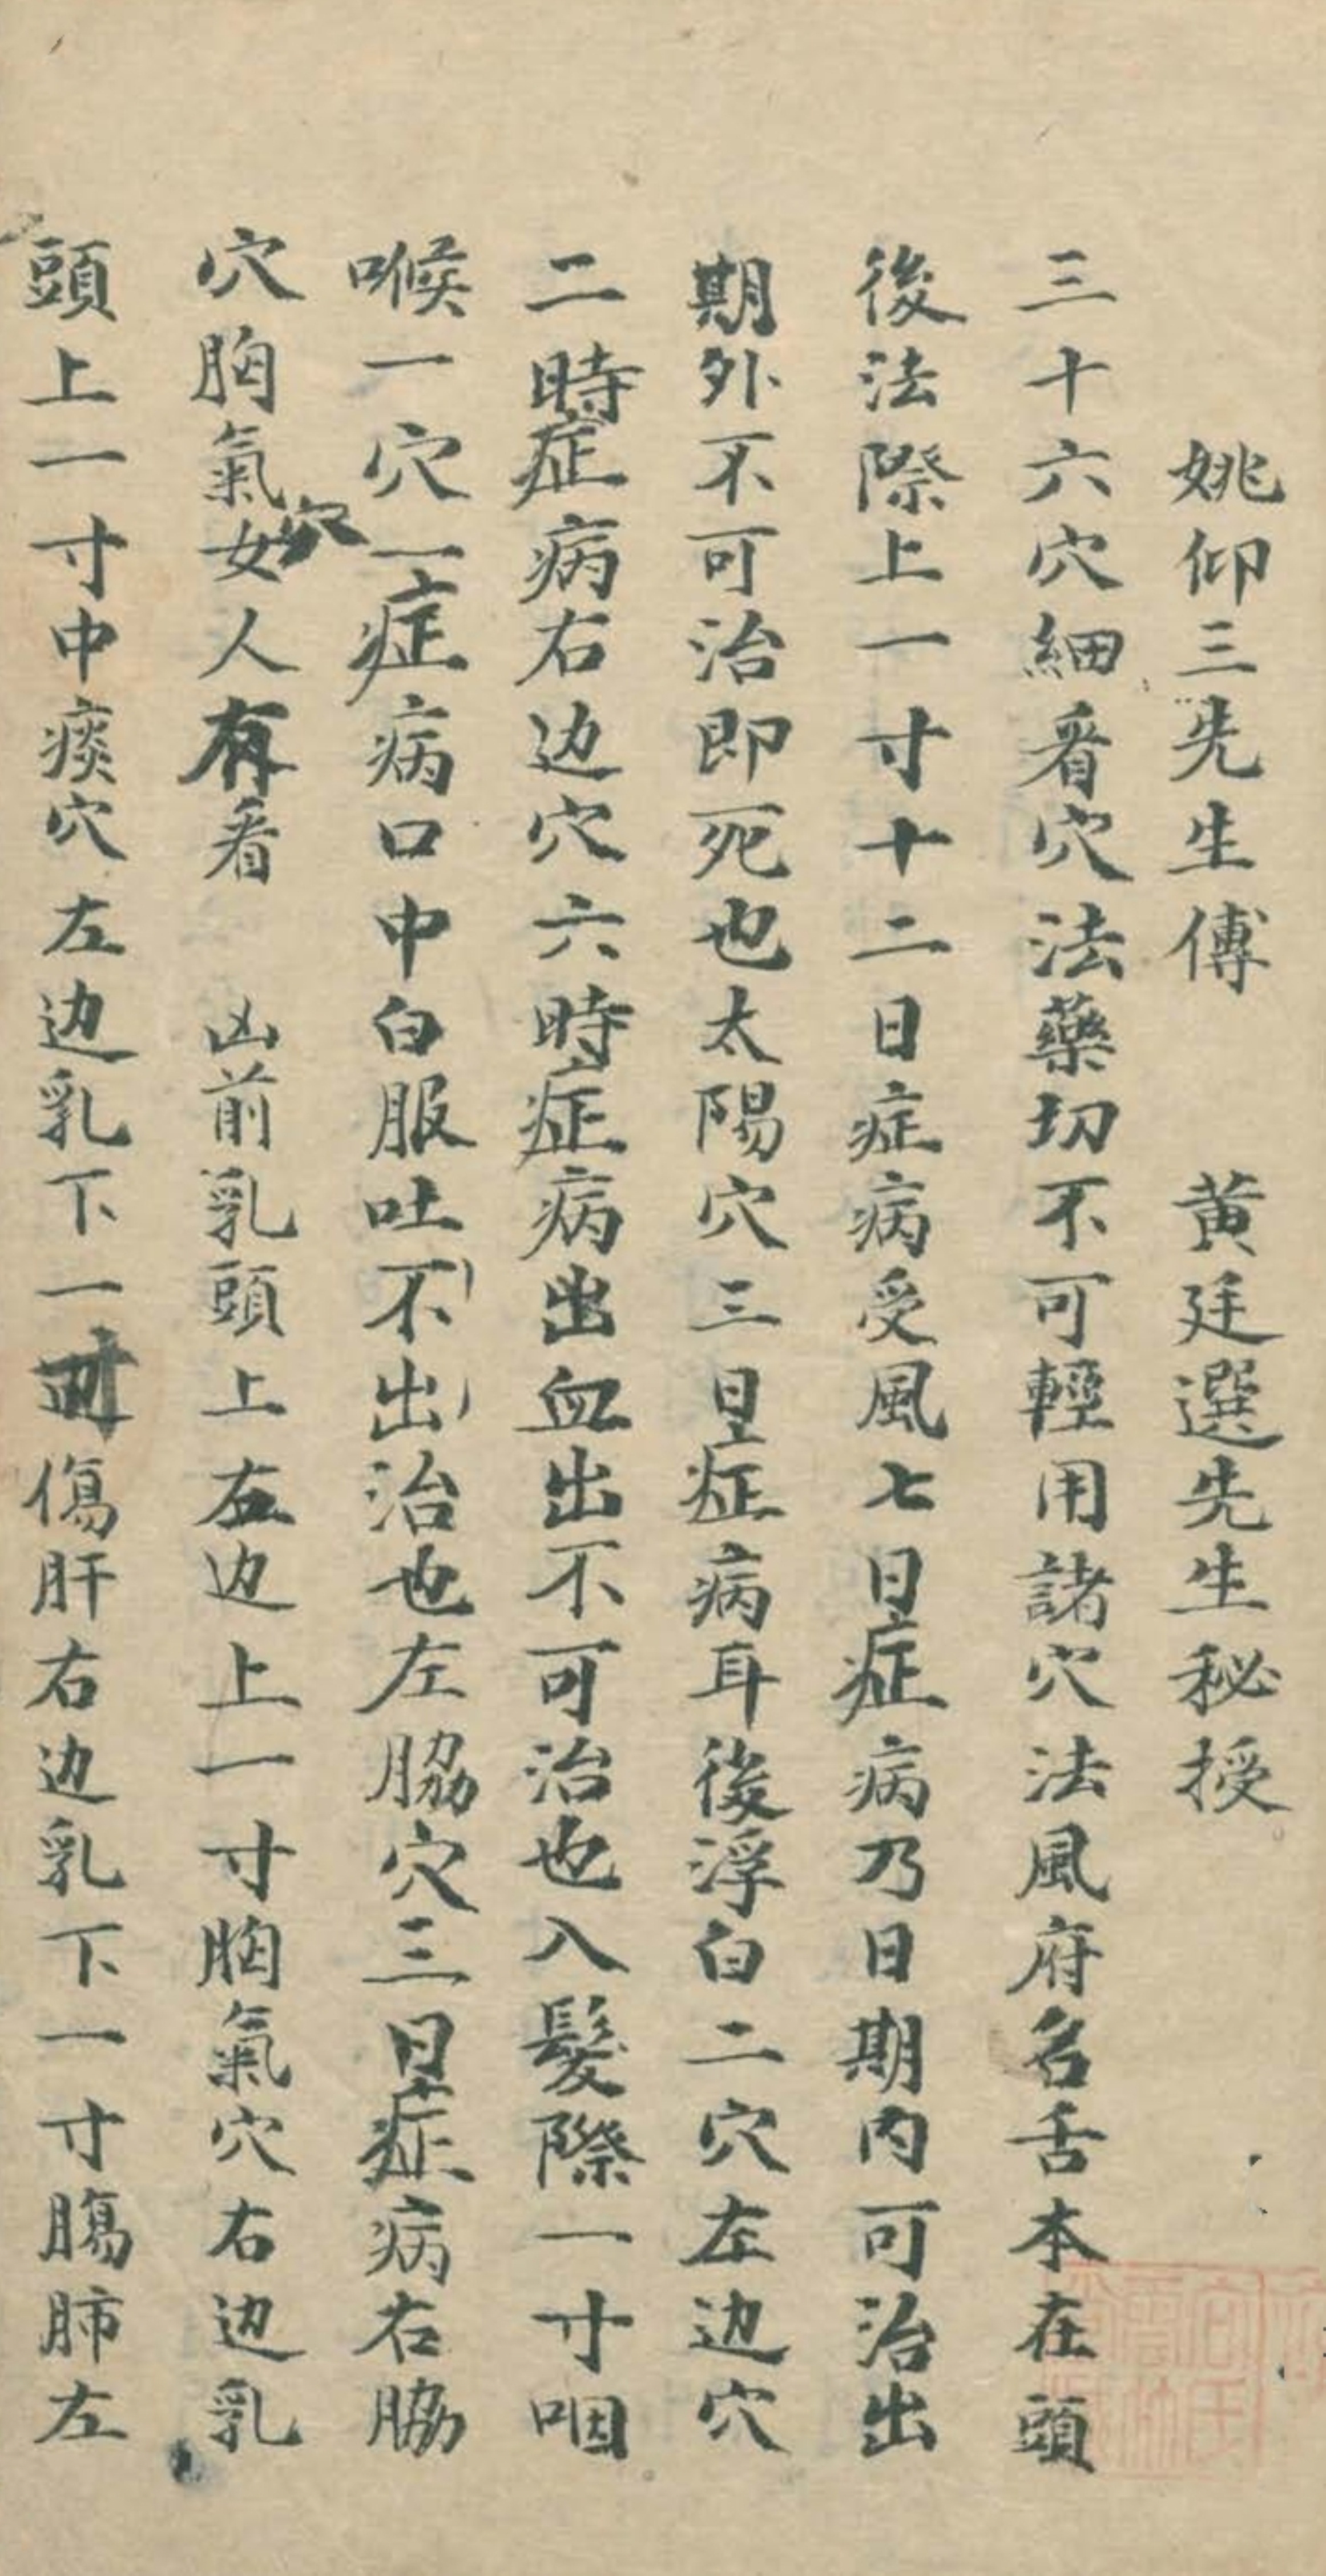 姚仰三先生傳　黃廷選先生秘授
三十六穴細看穴法藥切不可輕用諸穴法風府名舌本在頭
後法際上一寸十二日症病受風七日症病乃日期內可治出
期外不可治即死也太陽穴三日症病耳後浮白二穴左边穴
二時症病右边穴六時症病出血出不可治也入髮際一寸咽
喉一穴一症病口中白服吐不出治也左脇穴三日症病右脇
穴胸氣穴女人有看　凶前乳頭上右边上一寸胸氣穴右边乳
頭上一寸中痰穴左边乳下一寸傷肝右边乳下一寸腸肺左